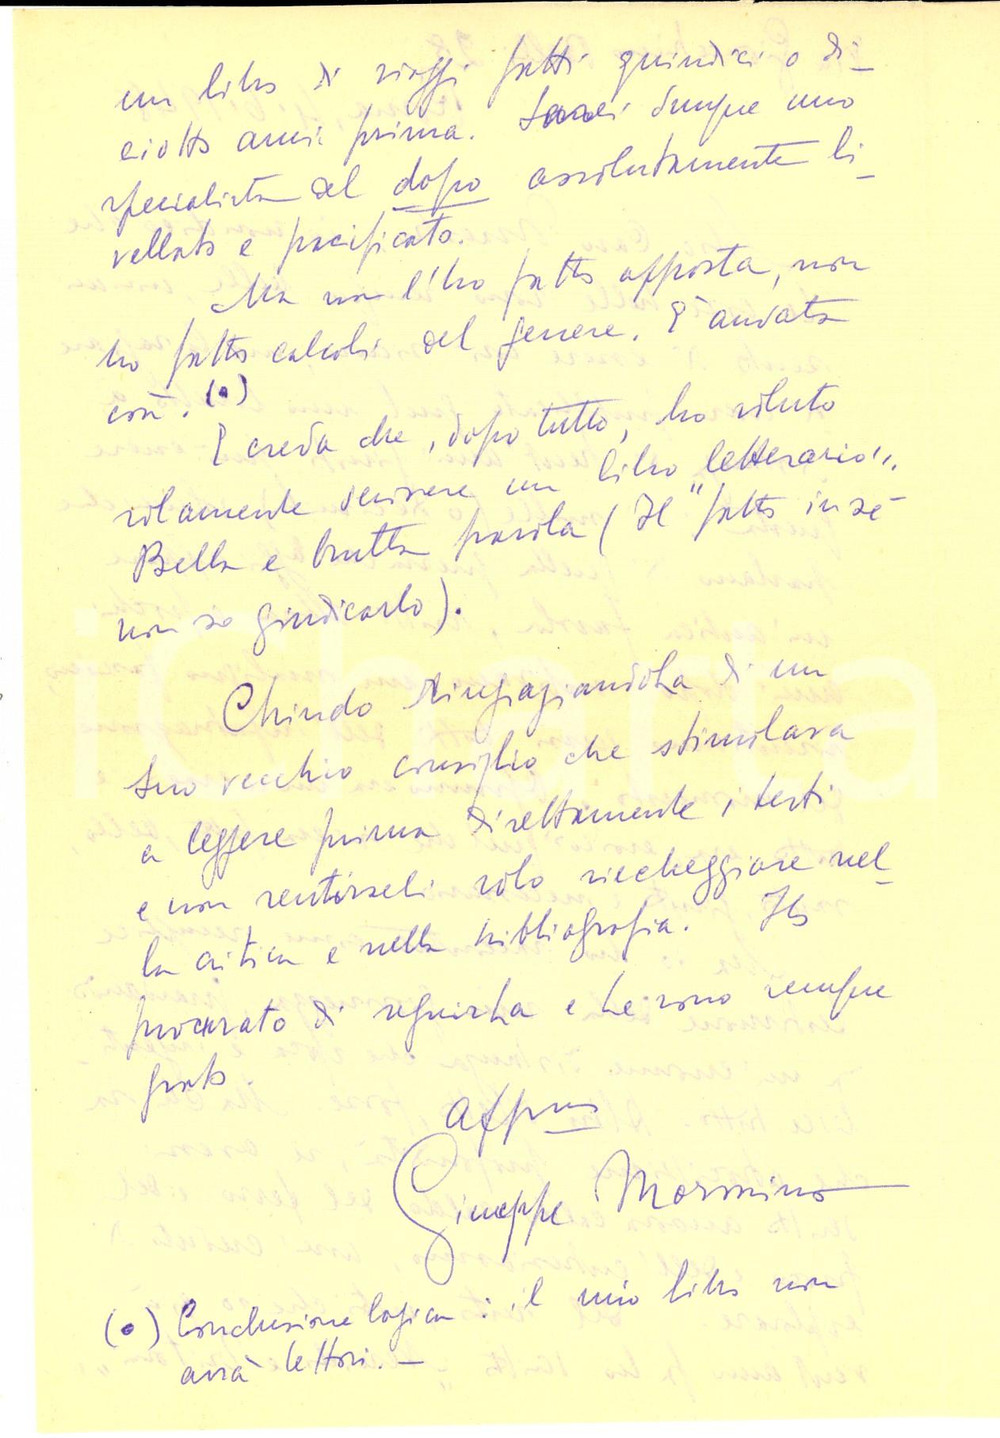 un libro di viaggi fatti quindici o di-
ciotto anni prima. Sarei dunque uno
specialista del dopo assolutamente li-
vellato e pacificato.
Ma non l'ho fatto apposta, non
ho fatto calcoli del genere. È andata
così. (•)
E creda che, dopo tutto, ho voluto
solamente scrivere un libro letterario".
Bella e brutta parola (Il "fatto in sé
non so giudicarlo).
Chiudo ringraziandola di un
Suo vecchio consiglio che stimolava
a leggere prima direttamente i testi
e non sentirseli solo riecheggiare nel-
la critica e nella bibliografia. Ho
procurato di seguirla e Le sono sempre
grato.
Aff.mo
Giuseppe Mormino
(•) Conclusione logica: il mio libro non
avrà lettori. —
iCharta